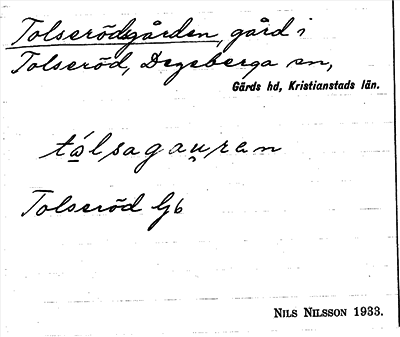 Tolserödsgården, gård i
Tolseröd, Degeberga sn,
Gärds hd, Kristianstads län.
tǻlsagau̯ṛan
Tolseröd Gb
NILS NILSSON 1933.